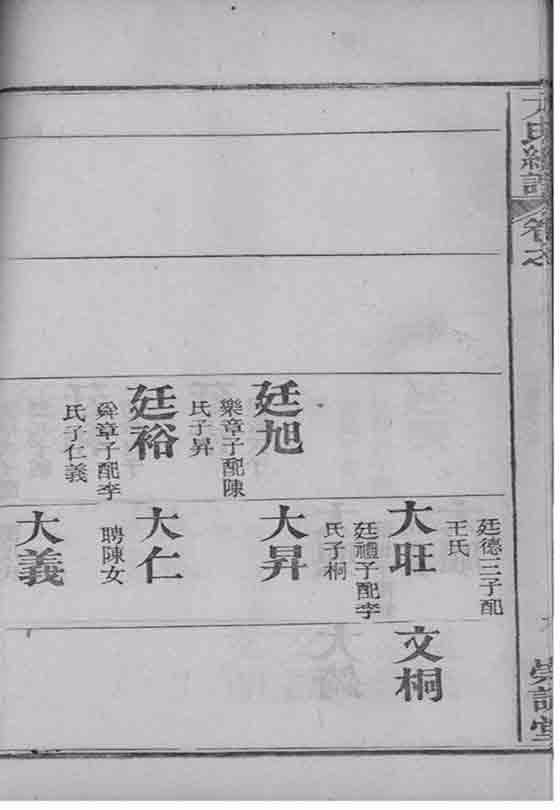 卷之
廷旭
樂章子配陳
氏子昇
廷裕
舜章子配李
氏子仁義
廷德三子配
王氏
大旺
廷禮子配李
氏子桐
大昇
大仁
聘陳女
大義
文桐